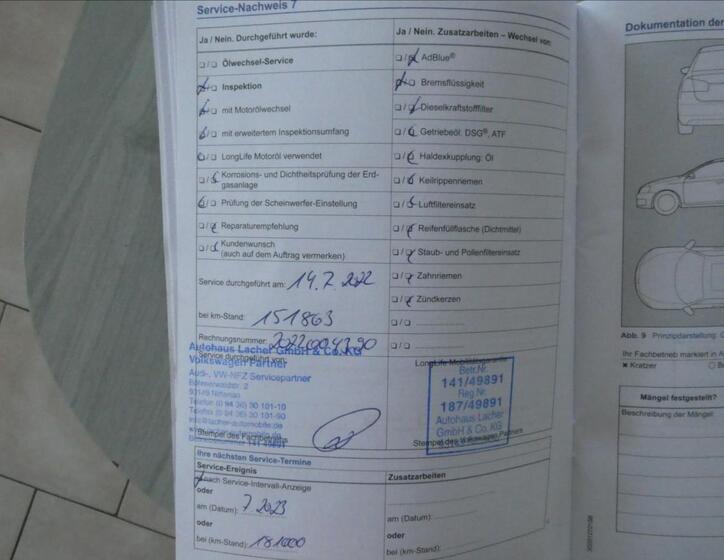 Service-Nachweis 7
Ja / Nein. Durchgeführt wurde:
Ölwechsel-Service
Inspektion
mit Motorölwechsel
mit erweitertem Inspektionsumfang
LongLife Motoröl verwendet
Korrosions- und Dichtheitsprüfung der Erd-
gasanlage
Prüfung der Scheinwerfer-Einstellung
Reparaturempfehlung
Kundenwunsch
(auch auf dem Auftrag vermerken)
Service durchgeführt am: 14.7.2022
bei km-Stand: 151863
Rechnungsnummer:
Service durchgeführt von:
Autohaus Lacher GmbH & Co. KG
Volkswagen Partner
Audi-, VW-NFZ Servicepartner
93149 Nittenau
Telefon (0 94 36) 30 101-10
Telefax (0 94 36) 30 101-90
info@lacher-automobile.de
Stempel des Fachbetriebs
Ja / Nein. Zusatzarbeiten – Wechsel von:
AdBlue®
Bremsflüssigkeit
Dieselkraftstofffilter
Getriebeöl: DSG®, ATF
Haldexkupplung: Öl
Keilrippenriemen
Luftfiltereinsatz
Reifenfüllflasche (Dichtmittel)
Staub- und Pollenfiltereinsatz
Zahnriemen
Zündkerzen
LongLife Mobilitätsgarantie
Betr.Nr.
141/49891
Reg.Nr.
187/49891
Autohaus Lacher
GmbH & Co. KG
Stempel des Volkswagen Partners
Ihre nächsten Service-Termine
Service-Ereignis
nach Service-Intervall-Anzeige
oder
am (Datum): 7 2023
oder
bei (km-Stand): 181000
Zusatzarbeiten
am (Datum):
oder
bei (km-Stand):
Dokumentation der
Abb. 9 Prinzipdarstellung:
Ihr Fachbetrieb markiert in
✖ Kratzer
Mängel festgestellt?
Beschreibung der Mängel: